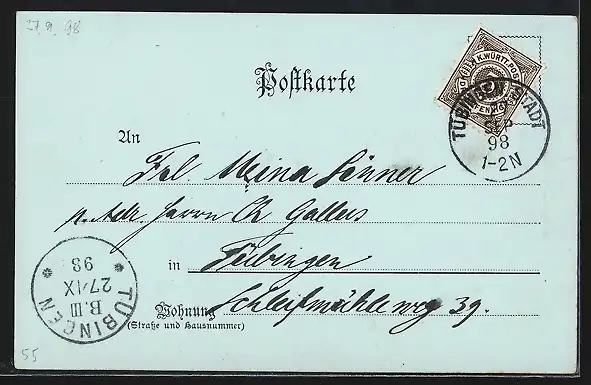 27.9.98
Postkarte
K. WÜRTT. POST
TÜBINGEN STADT
SEP
98
1-2N
An
Frl. Meina Senner
p. Adr. Herrn Ch Gallus
in Tübingen
Wohnung Schleifmühleweg 39.
(Straße und Hausnummer)
TÜBINGEN
B.III
27/IX
98
55